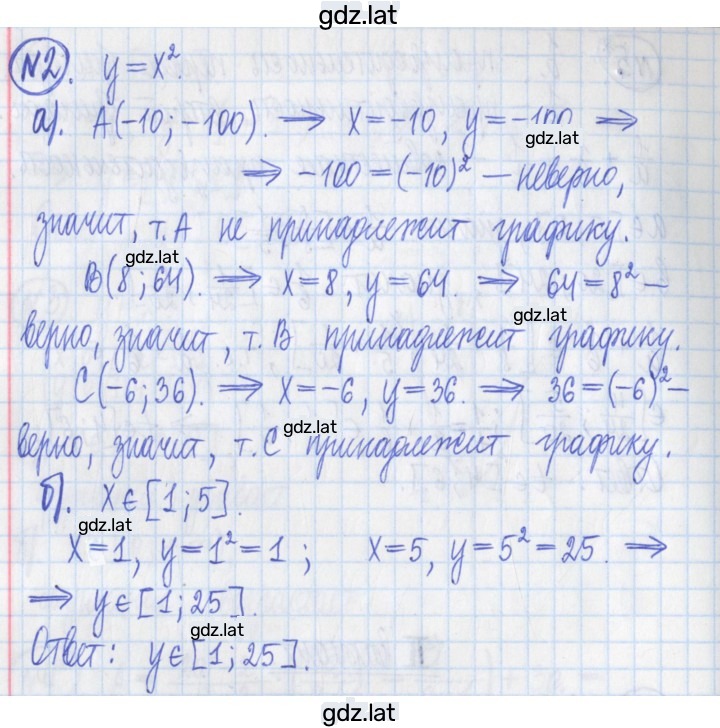 gdz.lat
№2. y=x².
а). A(-10; -100). ⟹ x=-10, y=-100 ⟹
gdz.lat
⟹ -100=(-10)² — неверно,
значит, т. A не принадлежит графику.
gdz.lat
B(8; 64). ⟹ x=8, y=64. ⟹ 64=8² —
gdz.lat
верно, значит, т. B принадлежит графику.
C(-6; 36). ⟹ x=-6, y=36. ⟹ 36=(-6)² —
gdz.lat
верно, значит, т. C принадлежит графику.
б). x∈[1; 5].
gdz.lat
x=1, y=1²=1; x=5, y=5²=25. ⟹
⟹ y∈[1; 25].
gdz.lat
Ответ: y∈[1; 25].
gdz.lat